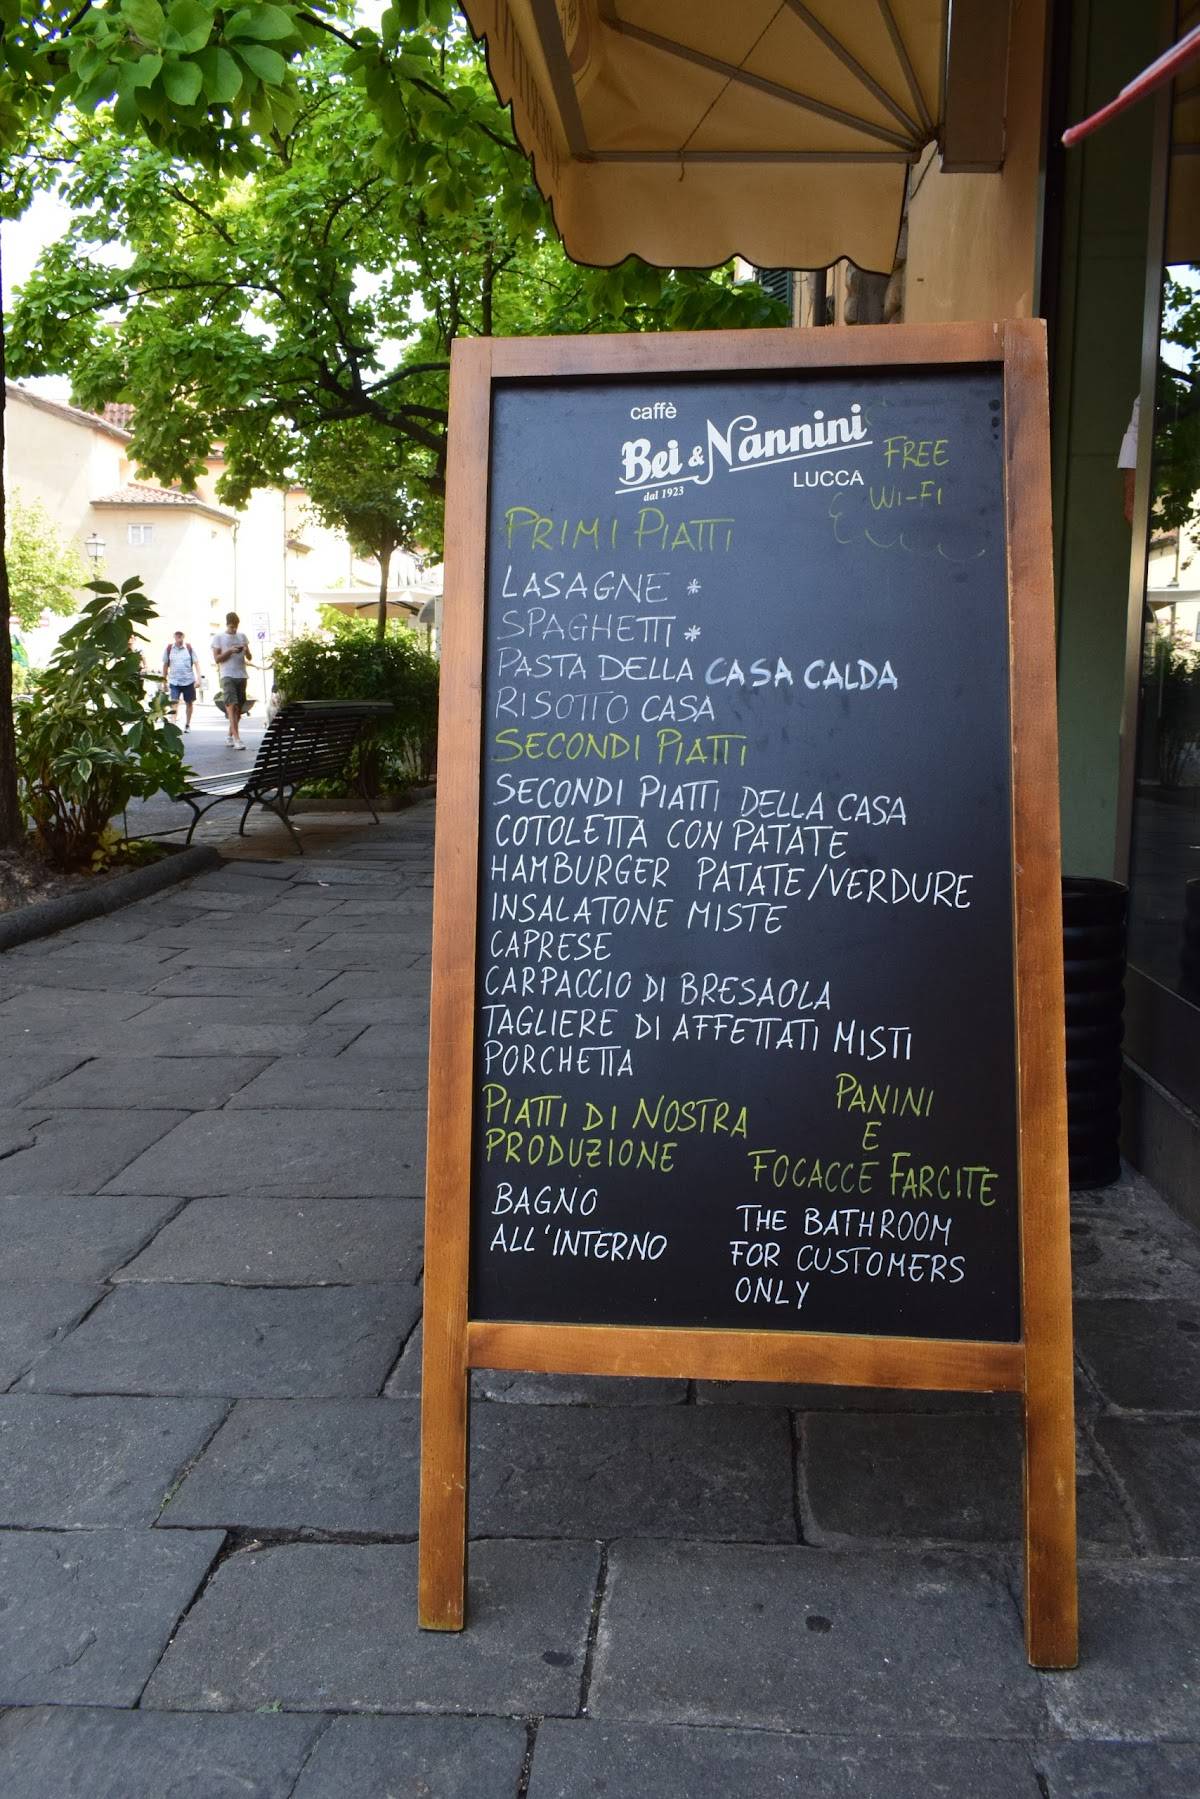 caffè
Bei & Nannini
dal 1923
LUCCA
FREE
WI-FI
PRIMI PIATTI
LASAGNE *
SPAGHETTI *
PASTA DELLA CASA CALDA
RISOTTO CASA
SECONDI PIATTI
SECONDI PIATTI DELLA CASA
COTOLETTA CON PATATE
HAMBURGER PATATE/VERDURE
INSALATONE MISTE
CAPRESE
CARPACCIO DI BRESAOLA
TAGLIERE DI AFFETTATI MISTI
PORCHETTA
PIATTI DI NOSTRA
PRODUZIONE
PANINI
E
FOCACCE FARCITE
BAGNO
ALL'INTERNO
THE BATHROOM
FOR CUSTOMERS
ONLY